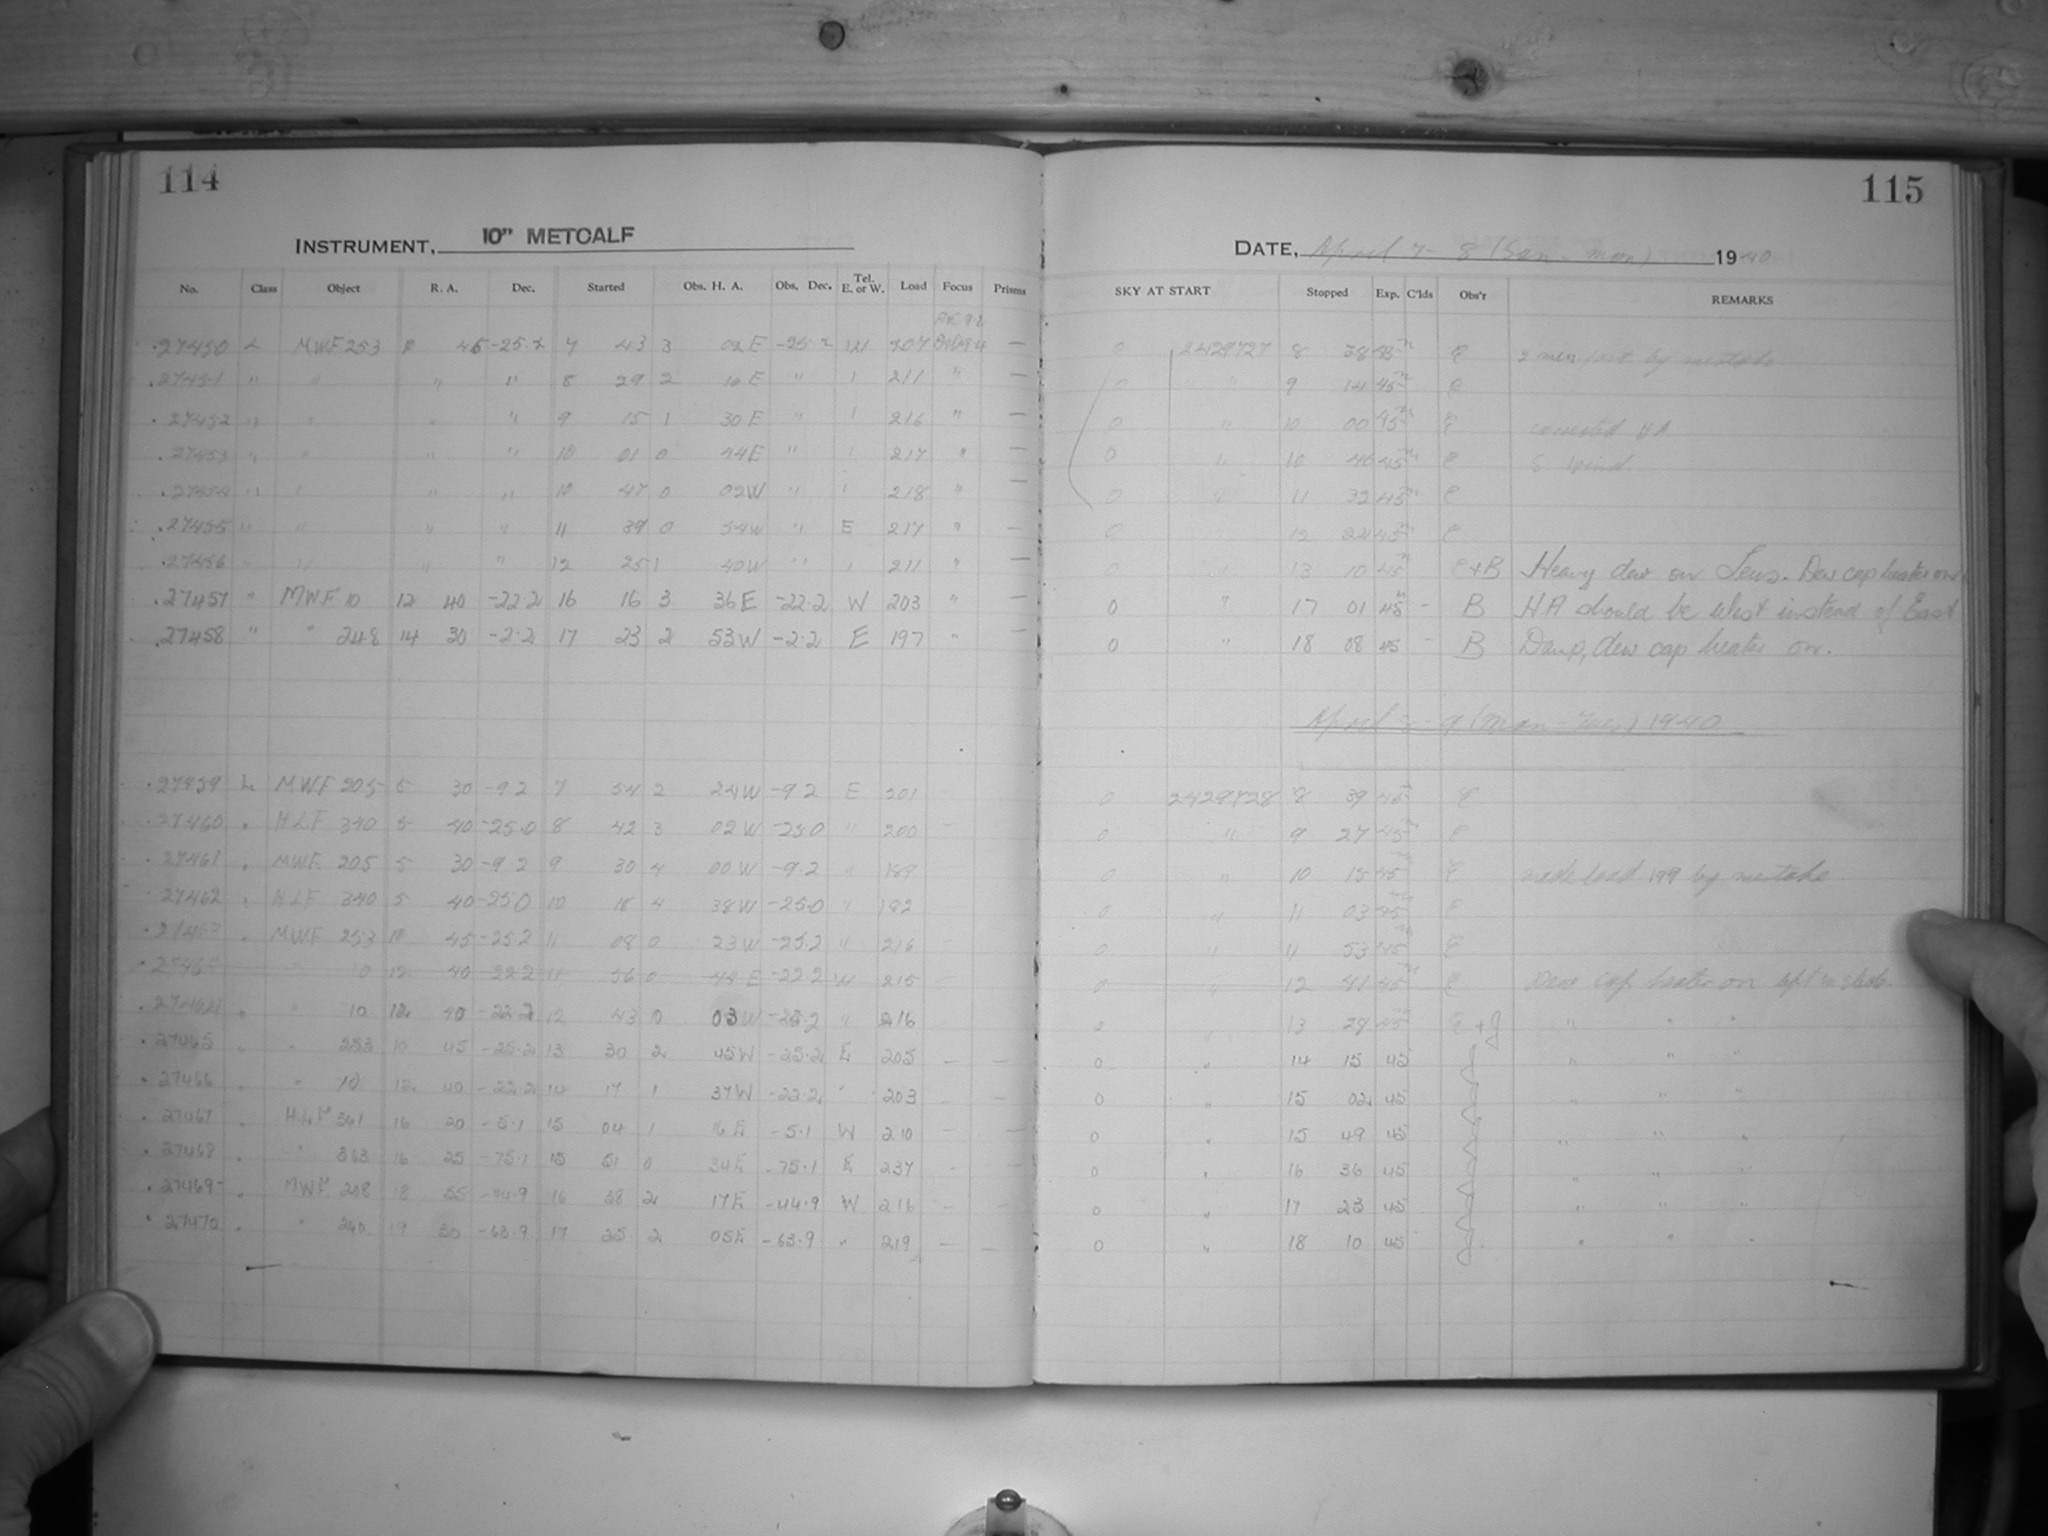 114
INSTRUMENT, 10" METCALF
No. Class Object R. A. Dec. Started Obs. H. A. Obs. Dec. Tel. E. or W. Load Focus Prisms
27450 L MWF 253 10 45 -25.2 7 43 3 02 E -25.2 207 —
27451 " " " " 8 29 2 16 E " 211 " —
27452 " " " " 9 15 1 30 E " 216 " —
27453 " " " " 10 01 0 44 E " 217 " —
27454 " " " " 10 47 0 02 W " 218 " —
27455 " " " " 11 39 0 54 W " E 217 " —
27456 " " " 12 25 1 40 W " 211 " —
27457 " MWF 10 12 40 -22.2 16 16 3 36 E -22.2 W 203 " —
27458 " " 248 14 30 -2.2 17 23 2 53 W -2.2 E 197 " —
27459 L MWF 205 5 30 -9.2 7 54 2 24 W -9.2 E 201
27460 HLF 340 5 40 -25.0 8 42 3 02 W -25.0 " 200
27461 MWF 205 5 30 -9.2 9 30 4 00 W -9.2 " 189
27462 HLF 340 5 40 -25.0 10 18 4 38 W -25.0 " 182
27463 MWF 253 10 45 -25.2 11 08 0 23 W -25.2 " 216
" 10 12 40 -22.2 11 56 0 44 E -22.2 W 215
27464 " 10 12 40 -22.2 12 43 0 03 W " 216
27465 " 253 10 45 -25.2 13 30 2 45 W -25.2 E 205 — —
27466 " 10 12 40 -22.2 14 17 1 37 W -22.2 " 203 — —
27467 HLF 341 16 20 -5.1 15 04 1 16 E -5.1 W 210 — —
27468 " 363 16 25 -75.1 15 51 0 34 E -75.1 E 237 — —
27469 MWF 208 18 55 -44.9 16 38 2 17 E -44.9 W 216 — —
27470 " 240 19 30 -63.9 17 25 2 05 E -63.9 " 219 — —
115
DATE, April 7 - 8 (Sun - Mon) 1940
SKY AT START Stopped Exp. C'lds Obs'r REMARKS
0 2429727 8 28 45m E 2 min by mistake
0 " 9 14 45m E
0 " 10 00 45m E corrected HA
0 " 10 46 45m E S wind
0 " 11 32 45m E
0 " 12 24 45m E
0 " 13 10 45m E+B Heavy dew on Lens. Dew cap heater on.
0 " 17 01 45m - B HA should be West instead of East
0 " 18 08 45 - B Damp, dew cap heater on.
April 8 - 9 (Mon - Tues) 1940
0 2429728 8 39 45m E
0 " 9 27 45m E
0 " 10 15 45m E made load 199 by mistake
0 " 11 03 45m E
0 " 11 53 45m E
0 " 12 41 45m E Dew cap heater on
0 " 13 28 45m E+J " " "
0 " 14 15 45 J " " "
0 " 15 02 45 J " " "
0 " 15 49 45 J " " "
0 " 16 36 45 J " " "
0 " 17 23 45 J " " "
0 " 18 10 45 J " " "